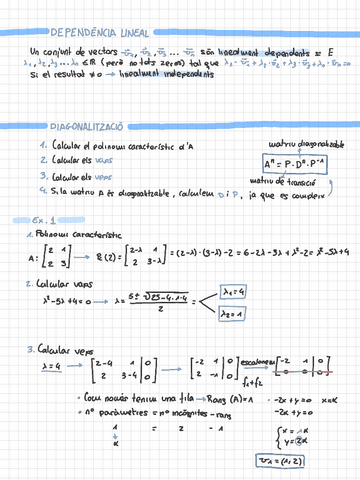 DEPENDÈNCIA LINEAL
Un conjunt de vectors v₁, v₂, v₃ ... vₙ són linealment dependents = E
λ₁, λ₂, λ₃ ... λₙ ∈ ℝ (però no tots zeros) tal que λ₁·v₁ + λ₂·v₂ + λ₃·v₃ + λₙ·vₙ = 0
Si el resultat ≠ 0 → linealment independents
DIAGONALITZACIÓ
1. Calcular el polinomi característic d'A
2. Calcular els vaps
3. Calcular els veps
4. Si la matriu A és diagonalitzable, calculem D i P, ja que es compleix
matriu diagonalitzable
Aⁿ = P · Dⁿ · P⁻¹
matriu de transició
Ex. 1
1. Polinomi característic
2. Calcular vaps
λ² - 5λ + 4 = 0 → λ = 5 ± √25 - 4·1·4 / 2
λ₁ = 4
λ₂ = 1
3. Calcular veps
λ = 4 → [2-4 1 | 0
2 3-4 | 0] → [-2 1 | 0
2 -1 | 0] [-2 1 | 0
0 0 | 0]
f₁+f₂
· Com només tenim una fila → Rang (A) = 1
· nº paràmetres = nº incògnites - rang
1 = 2 - 1
· -2x + y = 0
-2x + y = 0
v₁ = (1, 2)